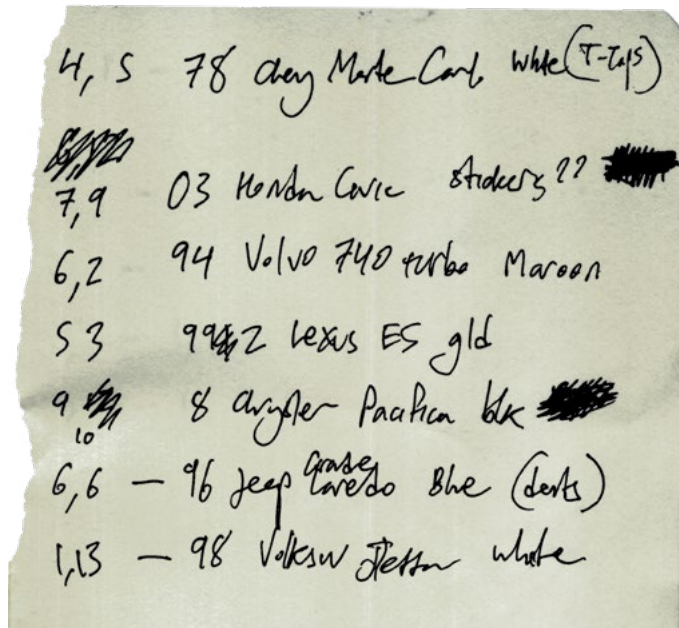 4, 5 78 Chevy Monte Carlo White (T-Tops)
7, 9 03 Honda Civic stickers ??
6, 2 94 Volvo 740 turbo Maroon
5 3 99 2 Lexus ES gld
9 10 8 Chrysler Pacifica blk
6, 6 — 96 Jeep Grande Laredo Blue (dents)
1, 13 — 98 Volksw Jetta white